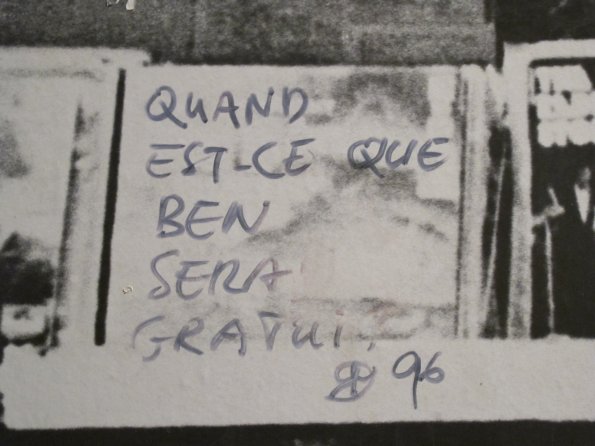 QUAND
EST-CE QUE
BEN
SERA
GRATUIT
96